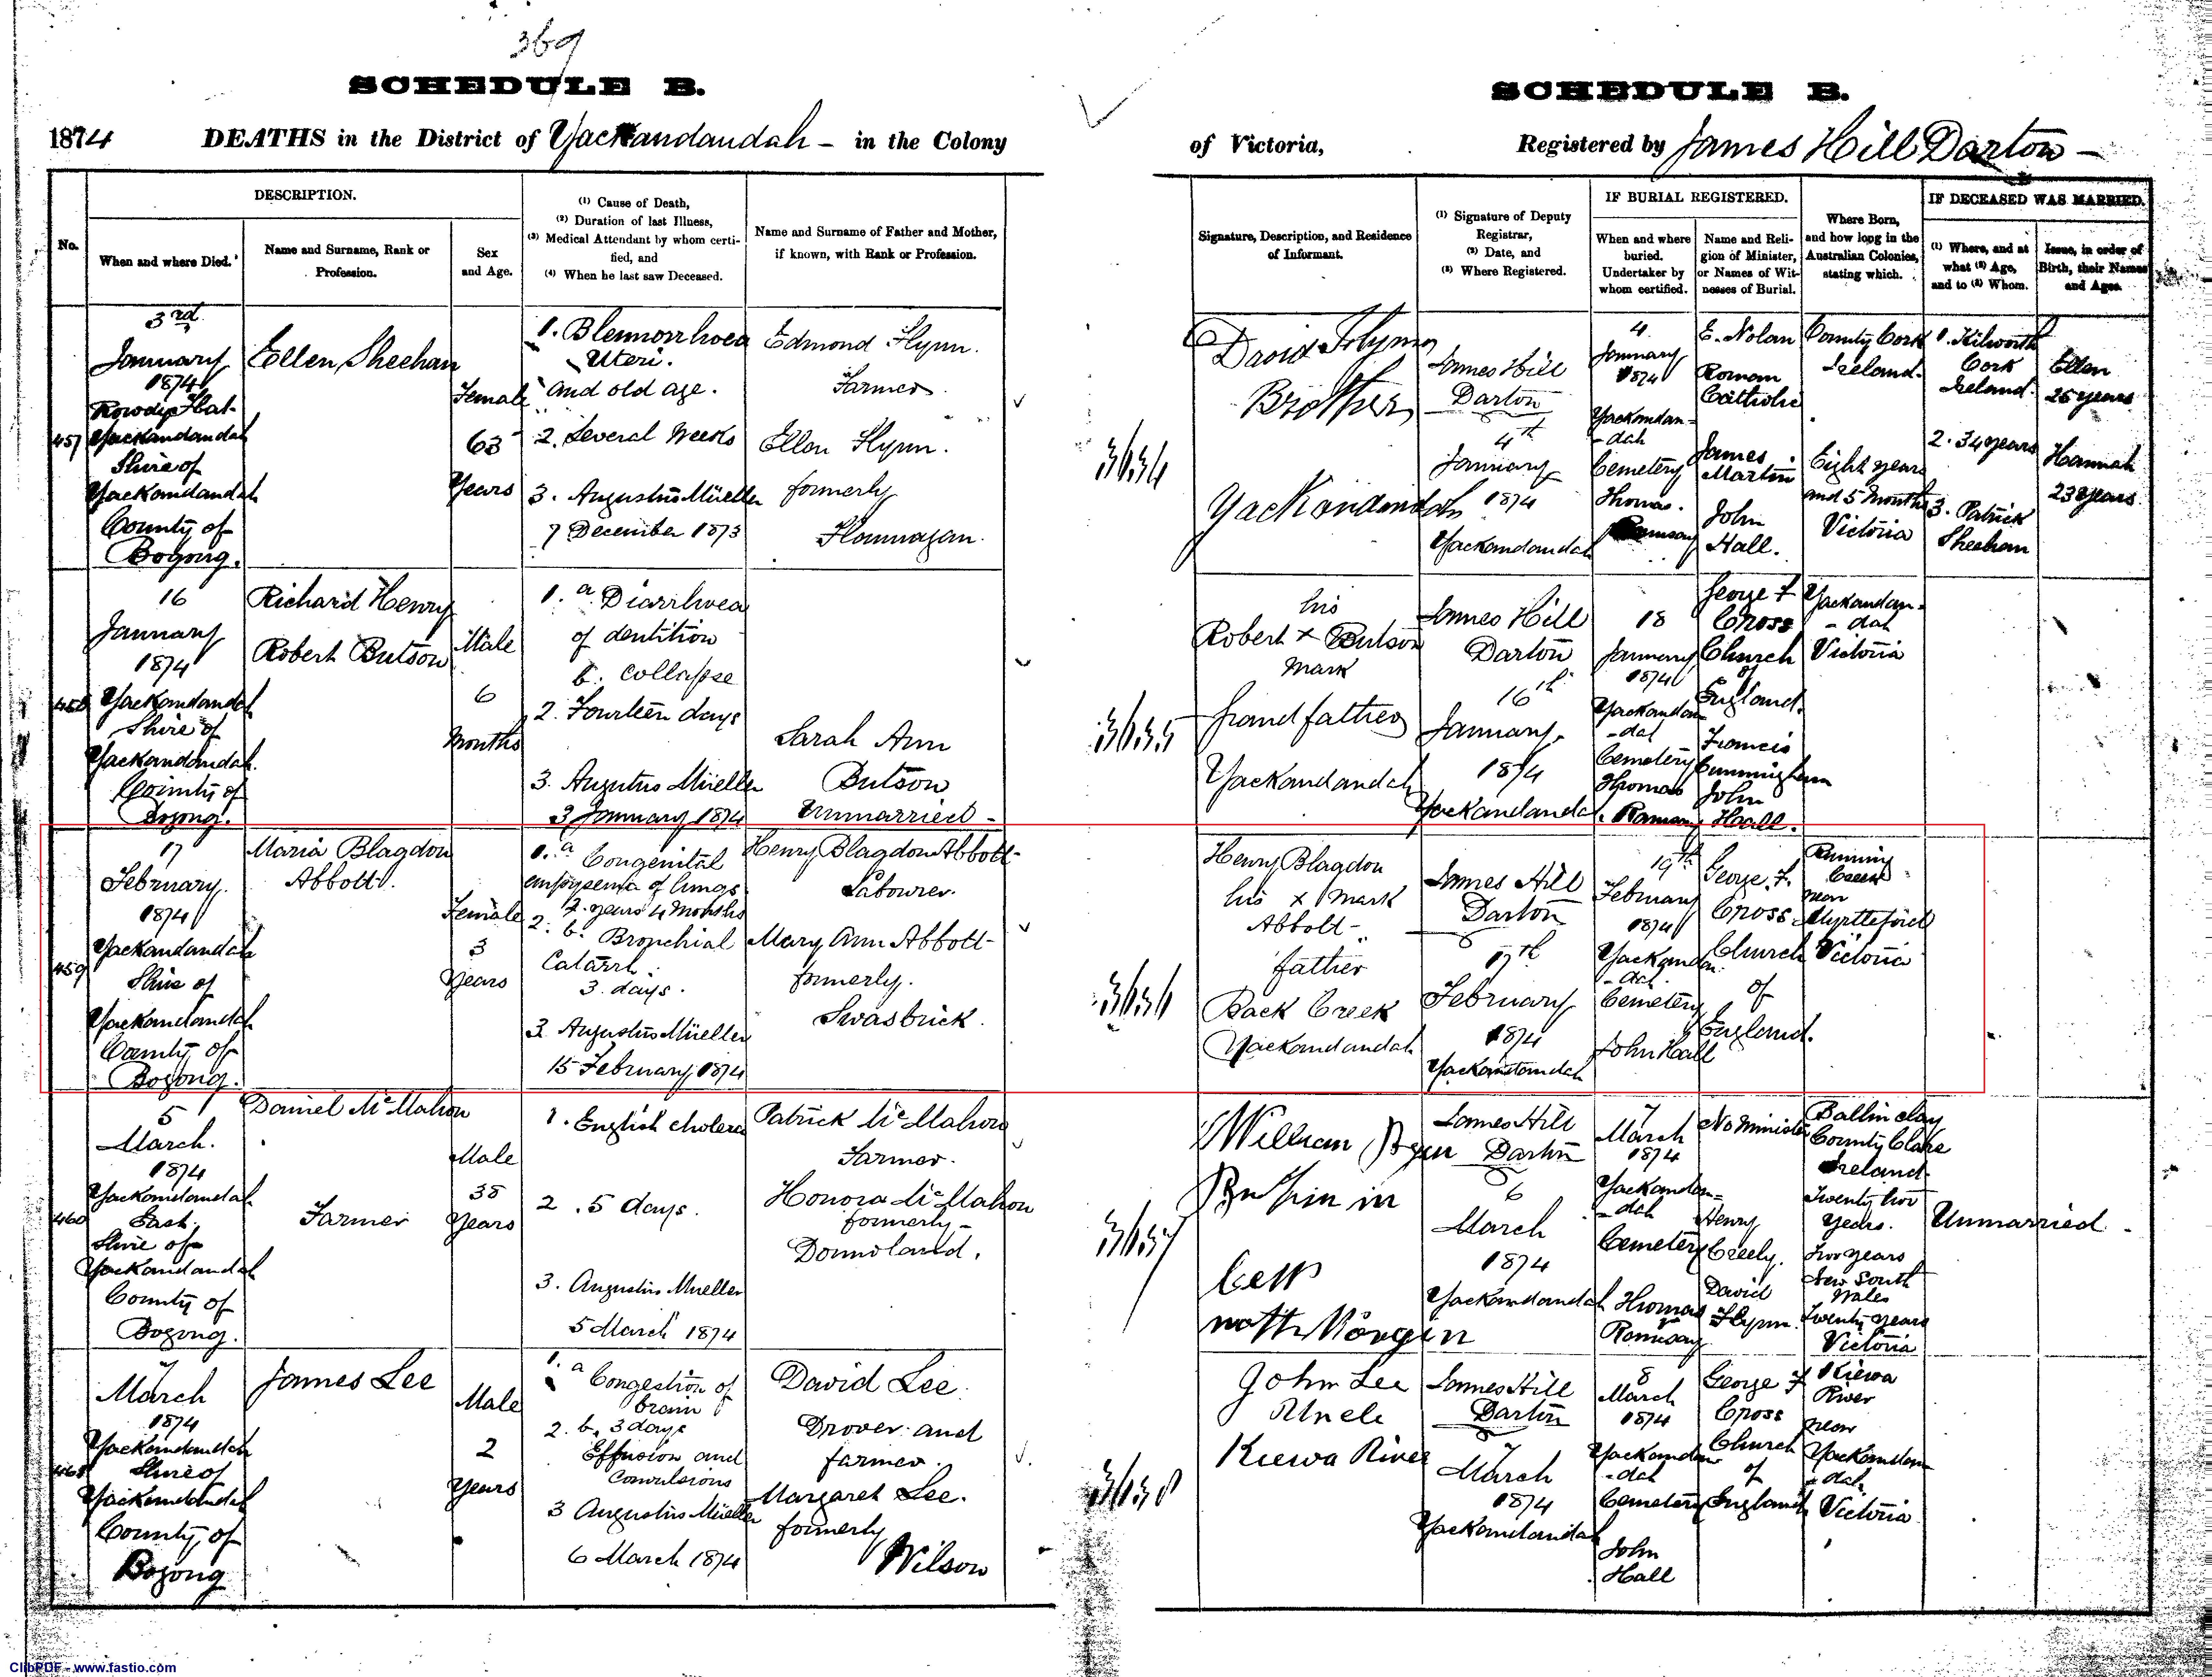 369
SCHEDULE B.
1874 DEATHS in the District of Yackandandah - in the Colony
No.
DESCRIPTION.
When and where Died.
Name and Surname, Rank or
Profession.
Sex
and Age.
(1) Cause of Death,
(2) Duration of last Illness,
(3) Medical Attendant by whom certi-
fied, and
(4) When he last saw Deceased.
Name and Surname of Father and Mother,
if known, with Rank or Profession.
457
3rd
January
1874
Rowdy Flat
Yackandandah
Shire of
Yackandandah
County of
Bogong.
Ellen Sheehan
Female
63
Years
1. Blennorrhoea
Uteri.
and old age.
2. Several Weeks
3. Augustus Müeller
7 December 1873
Edmond Flynn.
Farmer.
Ellen Flynn.
formerly
Flannagan.
458
16
January
1874
Yackandandah
Shire of
Yackandandah.
County of
Bogong.
Richard Henry
Robert Butson
Male
6
Months
1. a Diarrhoea
of dentition
b. collapse
2. Fourteen days
3. Augustus Müeller
3 January 1874
Sarah Ann
Butson
Unmarried -
459
17
February.
1874
Yackandandah
Shire of
Yackandandah
County of
Bogong.
Maria Blagdon
Abbott.
Female
3
Years
1. a Congenital
empysema of lungs
2. years 4 Months
2. b. Bronchial
Catarrh.
3. days.
3 Augustus Müeller
15 February 1874
Henry Blagdon Abbott-
Labourer.
Mary Ann Abbott-
formerly.
Swasbrick.
460
5
March.
1874
Yackandandah
East.
Shire of
Yackandandah
County of
Bogong.
Daniel McMahon
Farmer
Male
38
Years
1. English cholera
2. 5 days.
3. Augustus Mueller
5 March 1874
Patrick McMahon
Farmer.
Honora McMahon
formerly -
461
7
March
1874
Yackandandah
Shire of
Yackandandah
County of
Bogong
James Lee
Male
2
Years
1. a Congestion of
brain
2. b. 3 days
Effusion and
Convulsions
3 Augustus Müeller
6 March 1874
David Lee.
Drover and
farmer.
Margaret Lee.
formerly
Wilson
SCHEDULE B.
of Victoria, Registered by James Hill Darton -
Signature, Description, and Residence
of Informant.
(1) Signature of Deputy
Registrar,
(2) Date, and
(3) Where Registered.
IF BURIAL REGISTERED.
When and where
buried.
Undertaker by
whom certified.
Name and Reli-
gion of Minister,
or Names of Wit-
nesses of Burial.
Where Born,
and how long in the
Australian Colonies,
stating which.
IF DECEASED WAS MARRIED.
(1) Where, and at
what (2) Age,
and to (3) Whom.
Issue, in order of
Birth, their Names
and Ages.
3634
David Flynn
Brother
Yackandandah
James Hill
Darton
4th
January
1874
Yackandandah
4
January
1874
Yackandan-
-dah
Cemetery
Thomas.
Ramsay
E. Nolan
Roman
Catholic
James
Martin
John
Hall.
County Cork
Ireland.
Eight years
and 5 Months
Victoria
1. Kilworth
Cork
Ireland.
2. 34 years
3. Patrick
Sheehan
Ellen
25 years
Hannah
23 years.
3635
his
Robert x Butson
Mark
Grandfather
Yackandandah
James Hill
Darton
16th
January.
1874
Yackandandah.
18
January
1874
Yackandan
-dah
Cemetery
Thomas
Ramsay
George F
Cross
Church
of
England.
Francis
Cunningham
John
Hall.
Yackandan-
-dah
Victoria
3636
Henry Blagdon
his x mark
Abbott-
father
Back Creek
Yackandandah
James Hill
Darton
17th
February
1874
Yackandandah
19th
February
1874
Yackandan
-dah.
Cemetery
John Hall
George. F.
Cross
Church
of
England.
Running
Creek
near
Myrtleford
Victoria
3637
William
James Hill
Darton
6
March
1874
Yackandandah
7
March
1874
Yackandan-
-dah
Cemetery
Thomas
Ramsay
No Minister
Henry
Creely.
David
Flynn.
County Clare
Ireland.
Twenty two
Years.
Two years
New South
Wales
Twenty years
Victoria
Unmarried -
3638
John Lee
Uncle
Kiewa River
James Hill
Darton
7
March
1874
Yackandandah
8
March
1874
Yackandan
-dah
Cemetery
John
Hall
George F
Cross
Church
of
England
Kiewa
River
near
Yackandan
-dah.
Victoria
ClibPDF - www.fastio.com